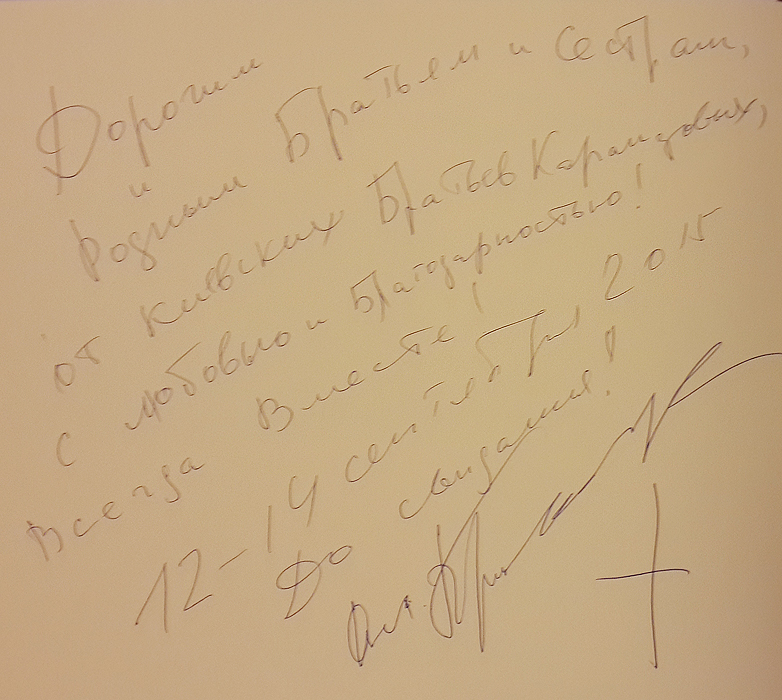 Дорогим
и
Родным Братьям и Сестрам,
от Киевских Братьев Карамазовых,
с любовью и Благодарностью!
Всегда Вместе!
12-14 сентября 2015
До свидания!